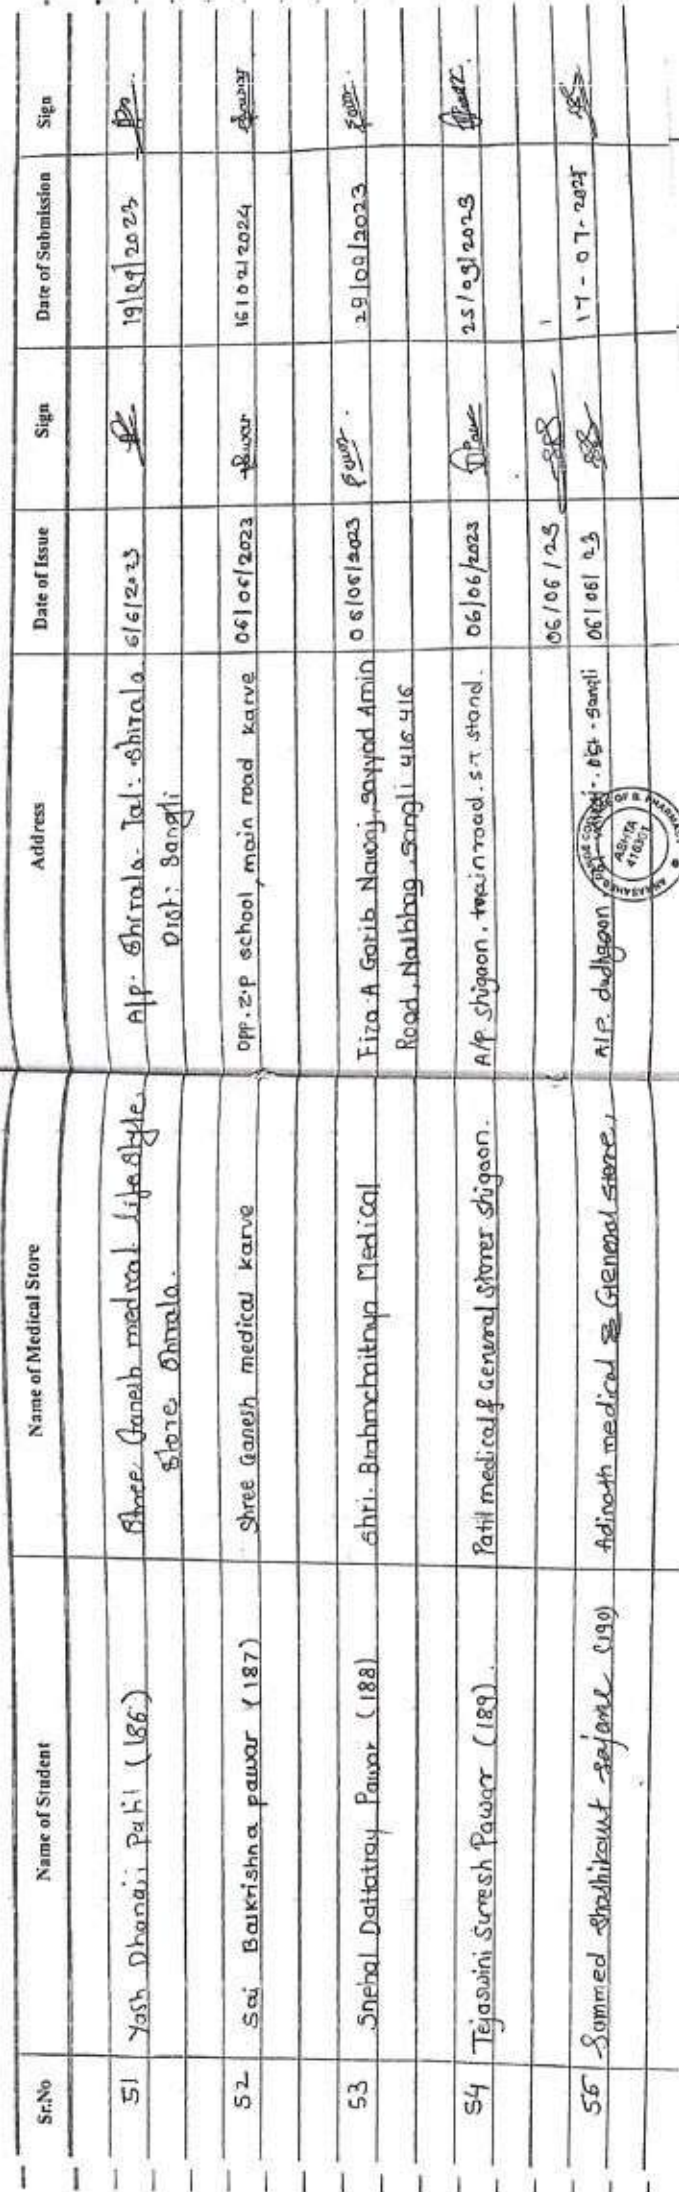 Sr.No Name of Student Name of Medical Store Address Date of Issue Sign Date of Submission Sign
51 Yash Dhanaji Patil (186) Shree Ganesh medical Life style, A/p. Shirala. Tal: Shirala. 6/6/2023 19/09/2023
Store Shirala. Dist: Sangli
52 Sai Balkrishna pawar (187) Shree Ganesh medical karve opp. z.p school, main road karve 06/06/2023 Pawar 16/02/2024 Pawar
53 Snehal Dattatray Pawar (188) shri. Brahmchaitnya Medical Fiza A Garib Nawaj, sayyad Amin 06/06/2023 Pawar. 29/09/2023 Pawar.
Road, Nalbhag, sangli 416 416
54 Tejaswini Suresh Pawar (189). Patil medical & General storer shigaon. A/p shigaon, main road. s.T stand. 06/06/2023 Pawar 25/09/2023 Pawar.
06/06/23
55 Sammed Shashikant Sajane (190) Adinath medical & General store, A/P. dudhgaon, Dist. Sangli 06/06/23 17-07-2025
ANNASAHEB DANGE COLLEGE OF B. PHARMACY
ASHTA
416301